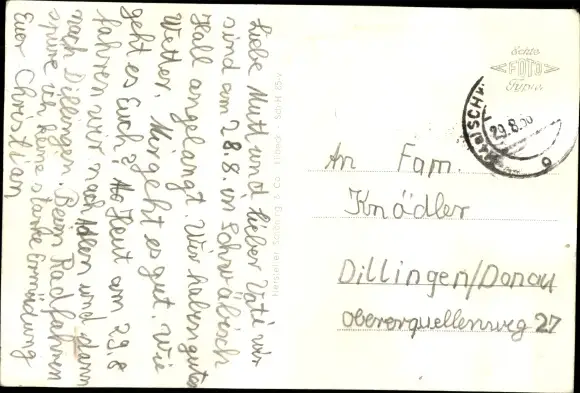 Liebe Mutti und lieber Vati wir
sind am 28.8. in Schwäbisch
Hall angelangt. Wir haben gutes
Wetter. Mir geht es gut. Wie
geht es Euch? Heut am 29.8
fahren wir nach Aalen und dann
nach Dillingen. Beim Radfahren
spüre ich keine starke Ermüdung
Euer Christian
Hersteller: Stolberg & Co.
Echte
FOTO
Typie
29.8.56
An Fam.
Knödler
Dillingen/Donau
Obererquellenweg 27